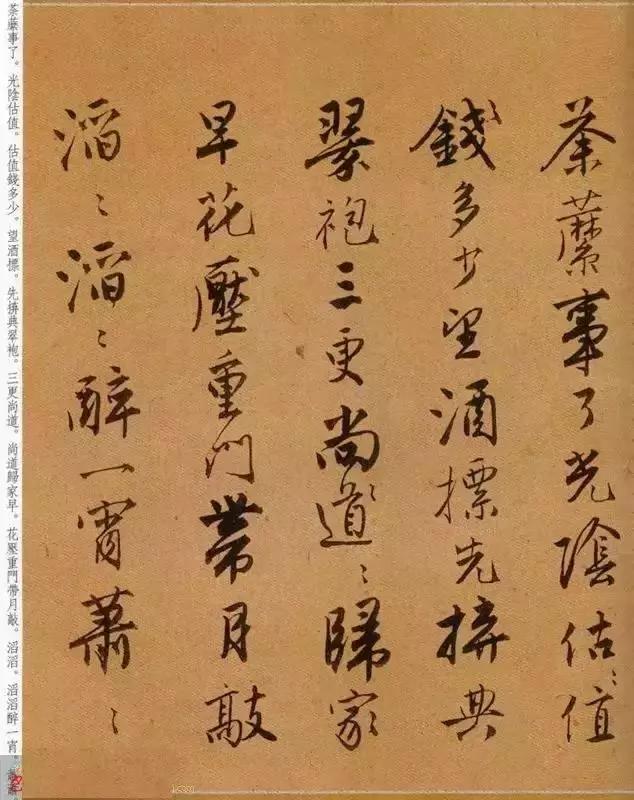 荼蘼事了光陰估〻值
〻錢多少望酒標先拚典
翠袍三更尚〻道〻歸家
早花壓重門帶月敲
滔〻滔〻醉一宵蕭〻
荼蘼事了。光陰估值。估值錢多少。望酒標。先拚典翠袍。三更尚道。尚道歸家早。花壓重門帶月敲。滔滔。滔滔醉一宵。